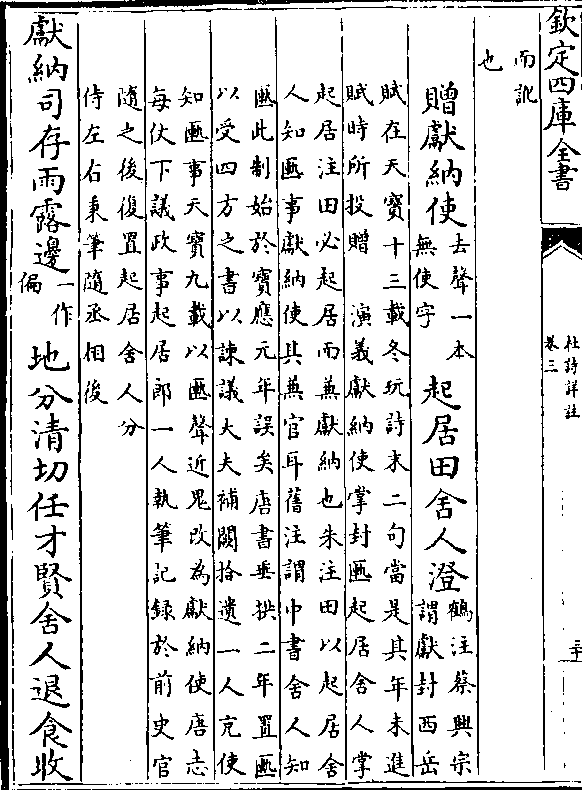 欽定四庫全書
杜詩詳註
卷三
二十
而訛
也
贈獻納使去聲一本
無使字起居田舍人澄鶴注蔡興宗
謂獻封西岳
賦在天寶十三載冬玩詩末二句當是其年未進
賦時所投贈　演義獻納使掌封匭起居舍人掌
起居注田必起居而兼獻納也朱注田以起居舍
人知匭事獻納使其兼官耳舊注謂中書舍人知
匭此制始於寶應元年誤矣唐書垂拱二年置匭
以受四方之書以諫議大夫補闕拾遺一人充使
知匭事天寶九載以匭聲近鬼改為獻納使唐志
每仗下議政事起居郎一人執筆記録於前史官
隨之後復置起居舍人分
侍左右秉筆隨丞相後
獻納司存雨露邊一作
偏地分清切任才賢舍人退食收